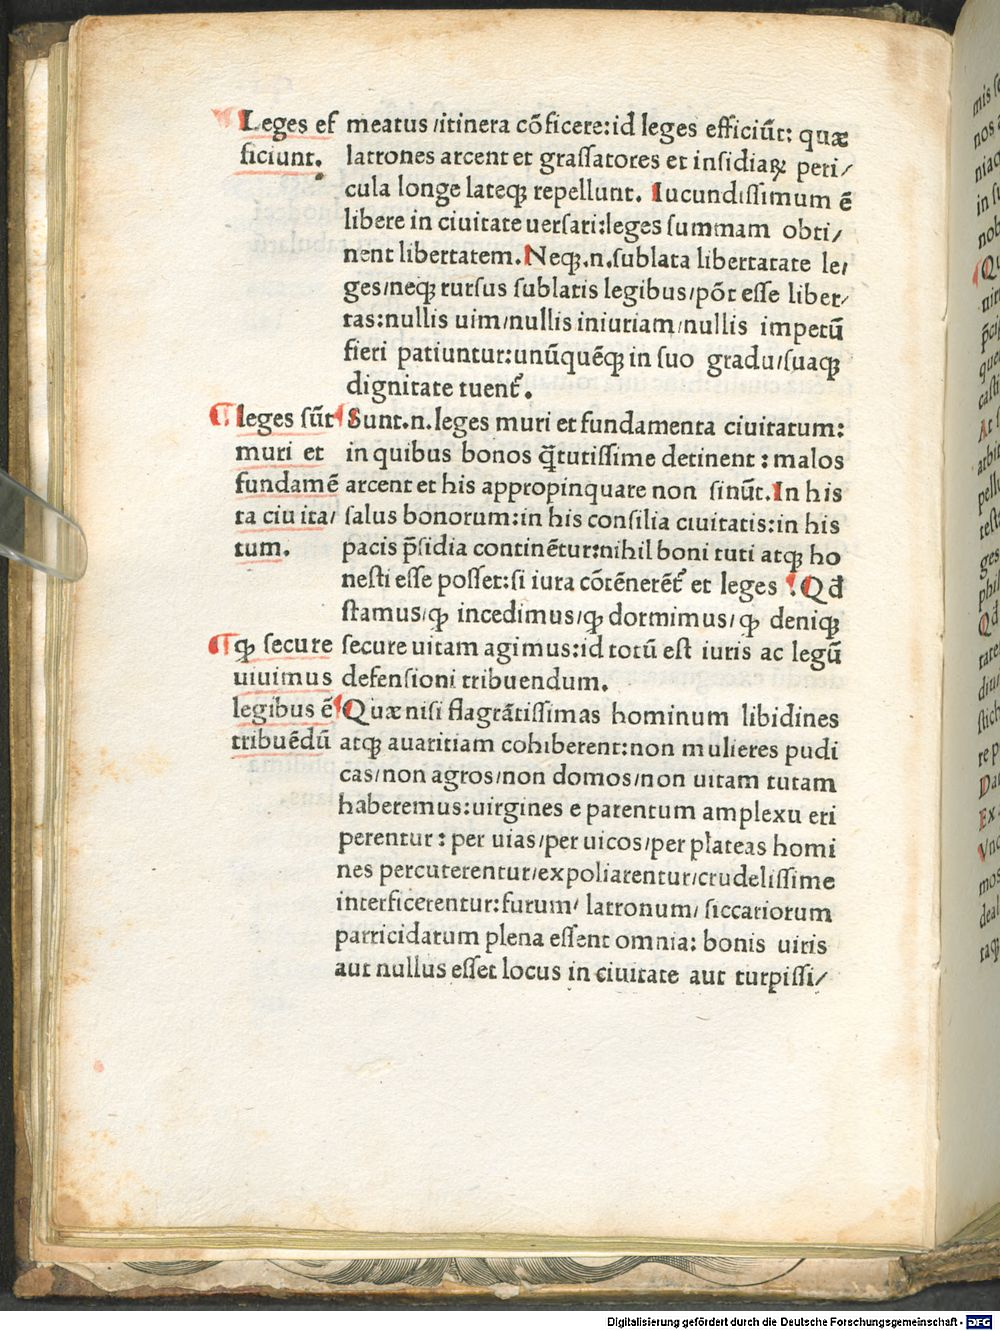 Leges ef
ficiunt.
meatus/itinera cõficere:id leges efficiũt: quæ
latrones arcent et grassatores et insidiaꝝ peri/
cula longe lateqꝫ repellunt. Iucundissimum ẽ
libere in ciuitate uersari:leges summam obti/
nent libertatem. Neqꝫ.n.sublata libertatate le/
ges/neqꝫ rursus sublatis legibus/põt esse liber/
tas:nullis uim/nullis iniuriam/nullis impetũ
fieri patiuntur:unũquẽqꝫ in suo gradu/suaqꝫ
dignitate tuent᷑.
leges sũt
muri et
fundamẽ
ta ciuita/
tum.
Sunt.n.leges muri et fundamenta ciuitatum:
in quibus bonos q̃tutissime detinent: malos
arcent et his appropinquare non sinũt. In his
salus bonorum:in his consilia ciuitatis:in his
pacis p̃sidia continẽtur:nihil boni tuti atqꝫ ho
nesti esse posset:si iura cõtẽnerẽt᷑ et leges. Qđ
stamus/qꝫ incedimus/qꝫ dormimus/qꝫ deniqꝫ
qꝫ secure
uiuimus
legibus ẽ
tribuẽdũ
secure uitam agimus:id totũ est iuris ac legũ
defensioni tribuendum.
Quæ nisi flagrãtissimas hominum libidines
atqꝫ auaritiam cohiberent:non mulieres pudi
cas/non agros/non domos/non uitam tutam
haberemus:uirgines e parentum amplexu eri
perentur: per uias/per uicos/per plateas homi
nes percuterentur/expoliarentur/crudelissime
interficerentur:furum/ latronum/ siccariorum
parricidarum plena essent omnia: bonis uiris
aut nullus esset locus in ciuitate aut turpissi/
Digitalisierung gefördert durch die Deutsche Forschungsgemeinschaft - DFG